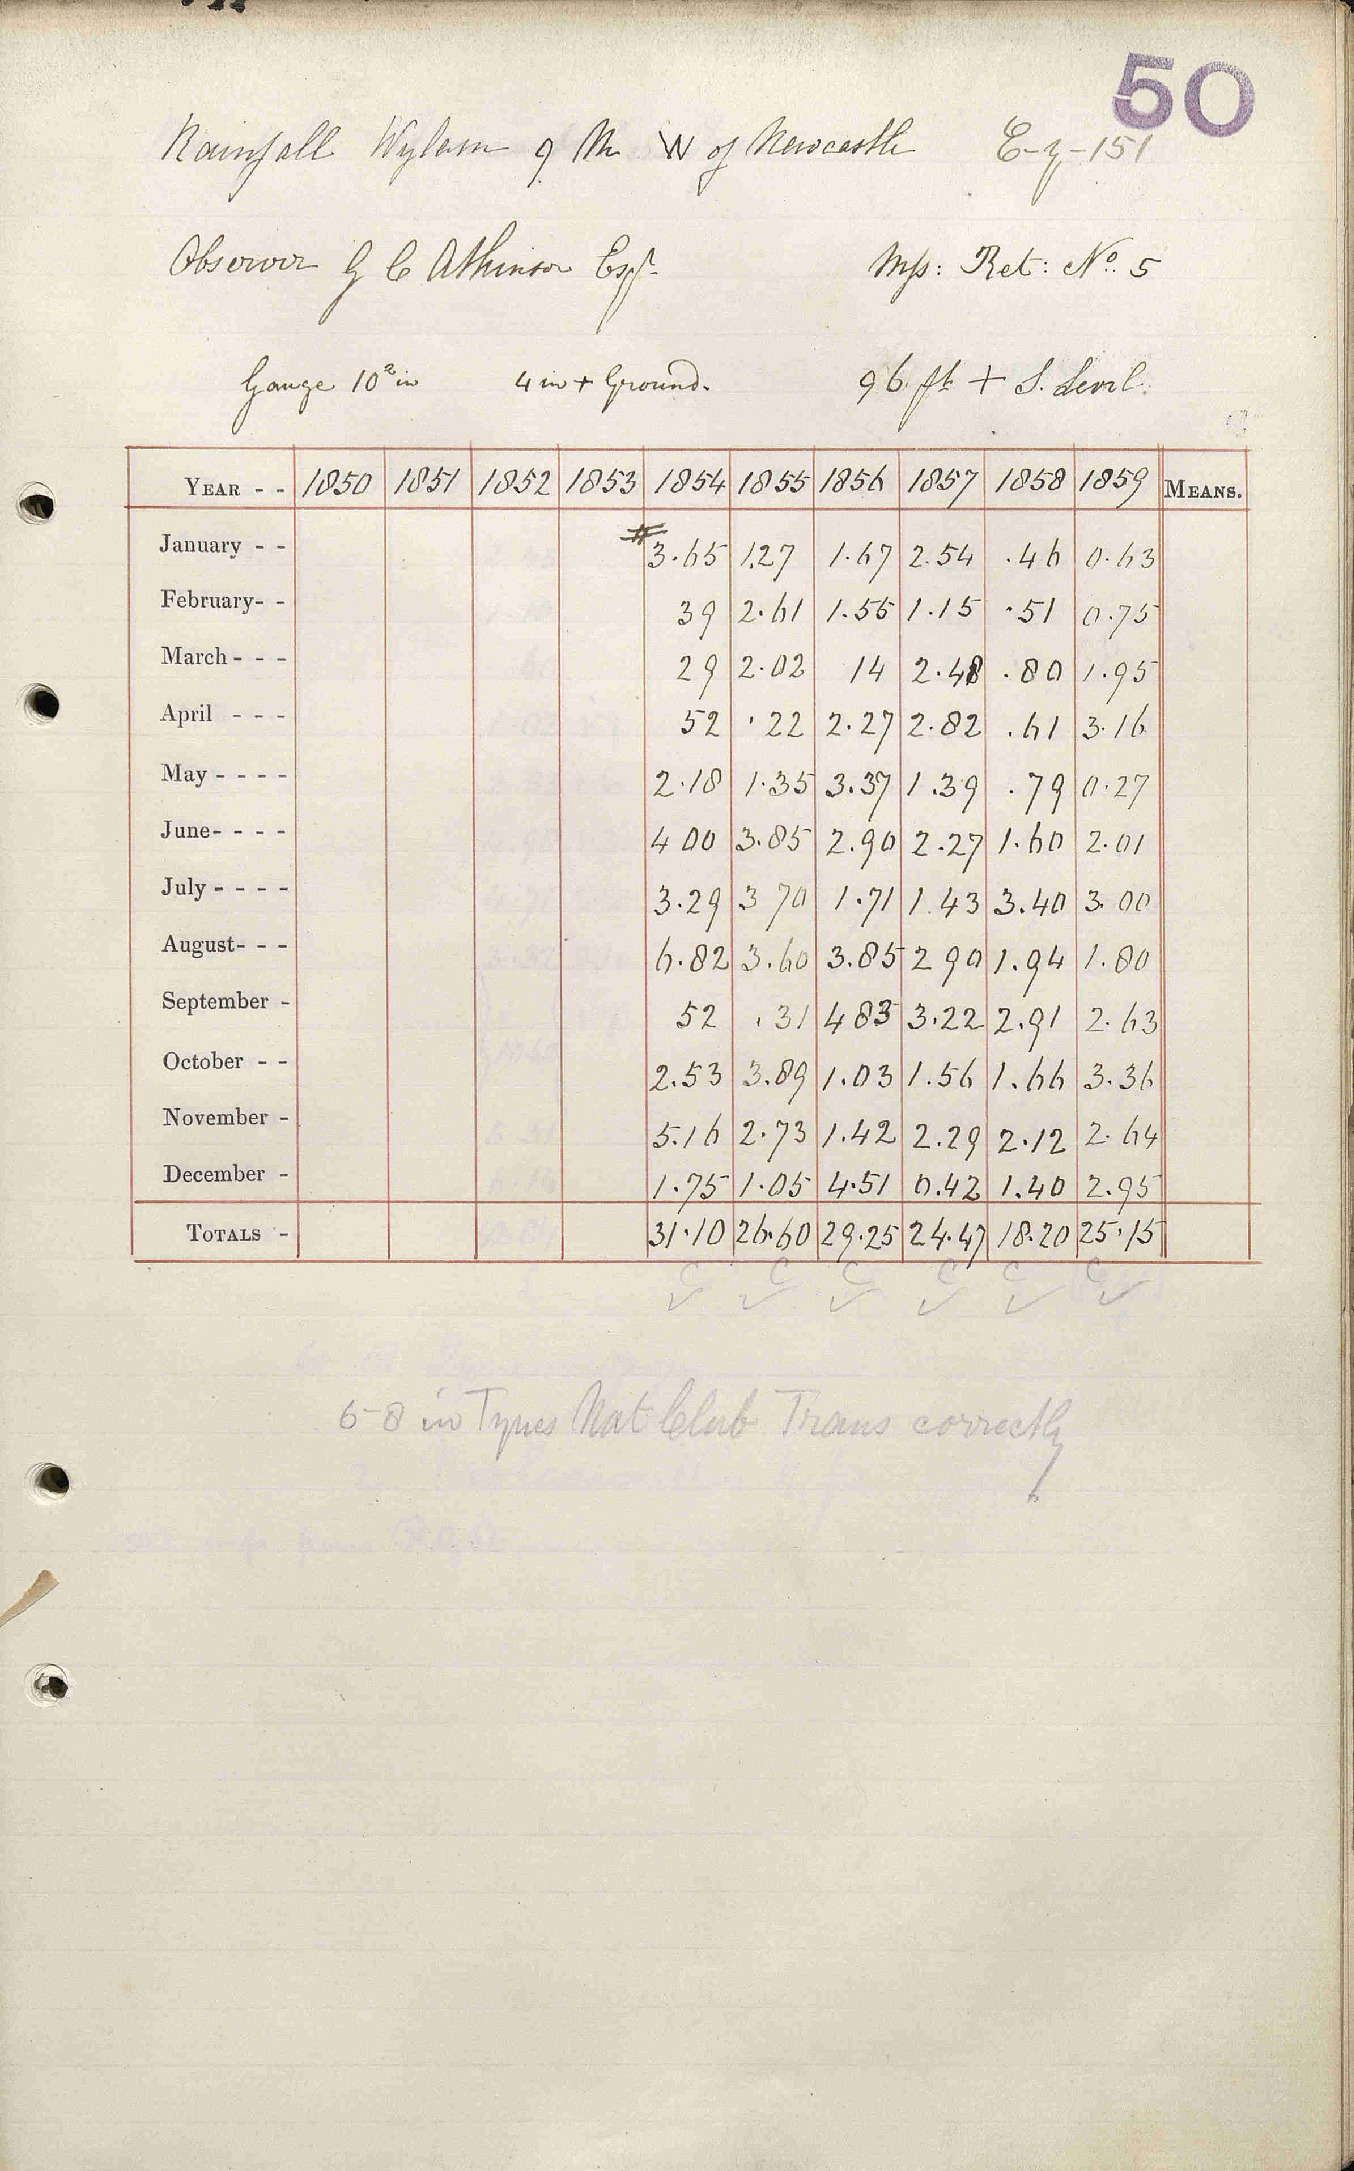 50
Rainfall Wylam 9 M W of Newcastle E-y-151
Observer G C Atkinson Esqr. Mss: Ret: No. 5
Gauge 10 in 4 in + Ground. 96 ft + S. Level.
YEAR - - 1850 1851 1852 1853 1854 1855 1856 1857 1858 1859 MEANS.
January - - # 3.65 1.27 1.67 2.54 .46 0.63
February- - 39 2.61 1.55 1.15 .51 0.75
March - - - 29 2.02 14 2.48 .80 1.95
April - - - 52 .22 2.27 2.82 .61 3.16
May - - - - 2.18 1.35 3.37 1.39 .79 0.27
June- - - - 4 00 3.85 2.90 2.27 1.60 2.01
July - - - - 3.29 3 70 1.71 1.43 3.40 3.00
August- - - 6.82 3.60 3.85 2 90 1.94 1.80
September - 52 .31 4 83 3.22 2.91 2.63
October - - 2.53 3.89 1.03 1.56 1.66 3.36
November - 5.16 2.73 1.42 2.29 2.12 2.64
December - 1.75 1.05 4.51 0.42 1.40 2.95
TOTALS - 31.10 26.60 29.25 24.47 18.20 25.15
C C C C C C
6-8 in Tynes Nat Club Trans correctly